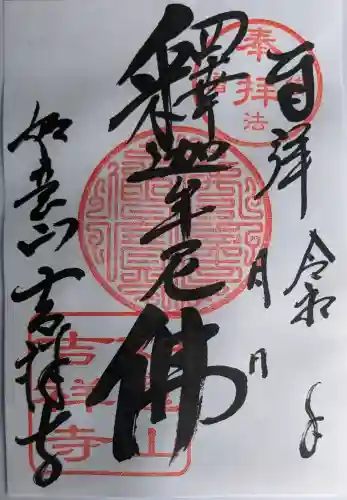 奉拝
令和 年 月 日
釋迦牟尼佛
如意山吉祥寺
山
吉祥寺